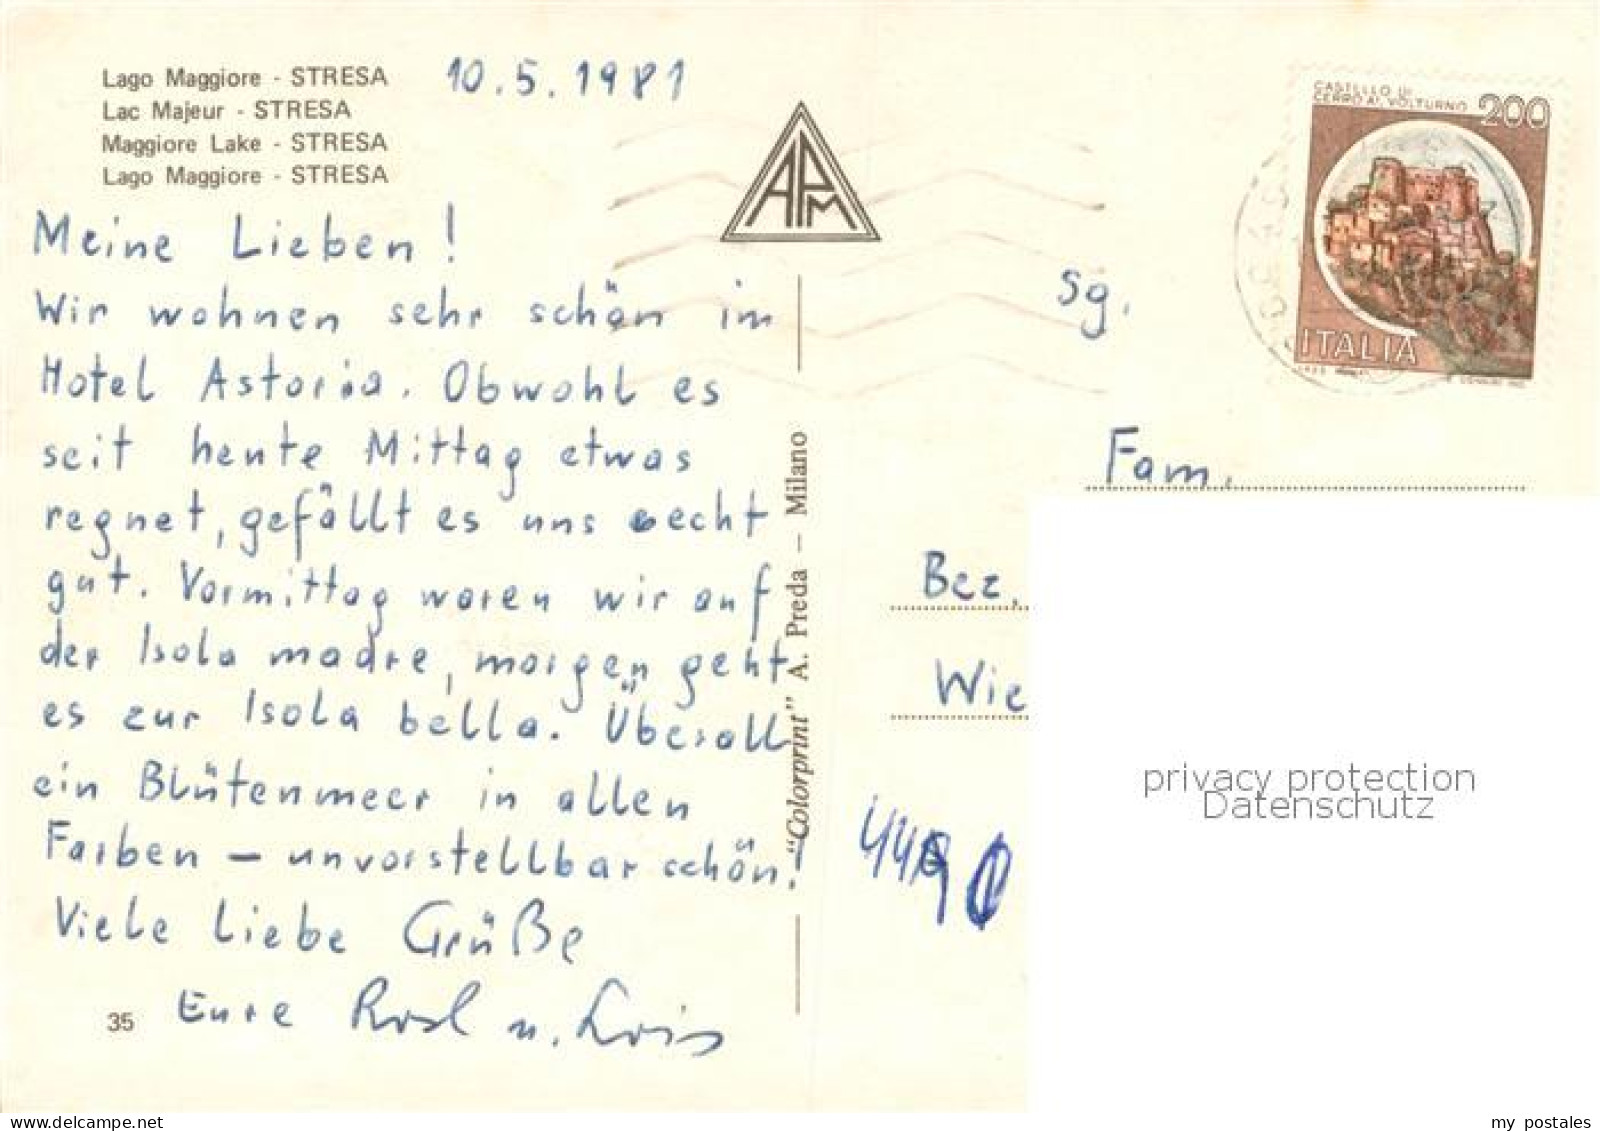 Lago Maggiore - STRESA
Lac Majeur - STRESA
Maggiore Lake - STRESA
Lago Maggiore - STRESA
10.5.1981
Meine Lieben!
Wir wohnen sehr schön im
Hotel Astoria. Obwohl es
seit heute Mittag etwas
regnet, gefällt es uns recht
gut. Vormittag waren wir auf
der Isola madre, morgen geht
es zur Isola bella. Überall
ein Blütenmeer in allen
Farben – unvorstellbar schön!
Viele liebe Grüße
Eure Rosl u. Lois
35
APM
"Colorprint" A. Preda – Milano
CASTELLO DI
CERRO AL VOLTURNO 200
ITALIA
Sg.
Fam.
Bez.
Wie
privacy protection
Datenschutz
my postales
www.delcampe.net